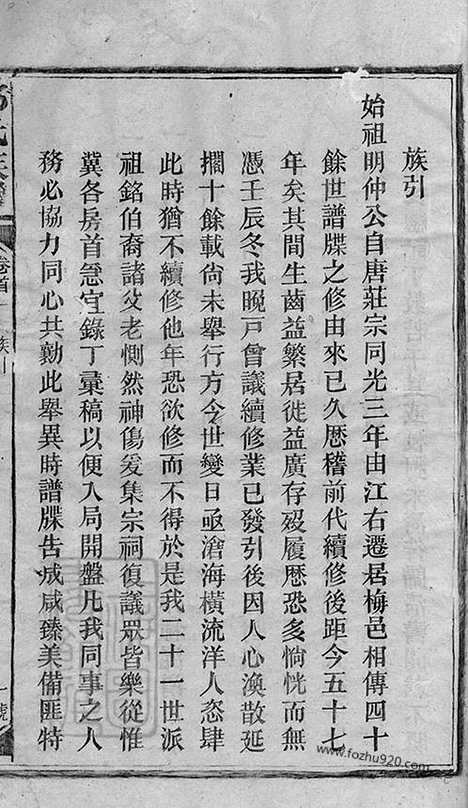 族引
始祖明仲公自唐莊宗同光三年由江右遷居梅邑相傳四十
餘世譜牒之修由來已久歷稽前代續修後距今五十七
年矣其間生齒益繁居徙益廣存歿履歷恐多惝恍而無
憑壬辰冬我晚戸曾議續修業已發引後因人心渙散延
擱十餘載尚未舉行方今世變日亟滄海橫流洋人恣肆
此時猶不續修他年恐欲修而不得於是我二十一世派
祖銘伯裔諸父老惻然神傷爰集宗祠復議眾皆樂從惟
冀各房首急宜錄丁彙稿以便入局開盤凡我同事之人
務必協力同心共勷此舉異時譜牒告成咸臻美備匪特
卷首
族引
一號
www.fozhu920.com